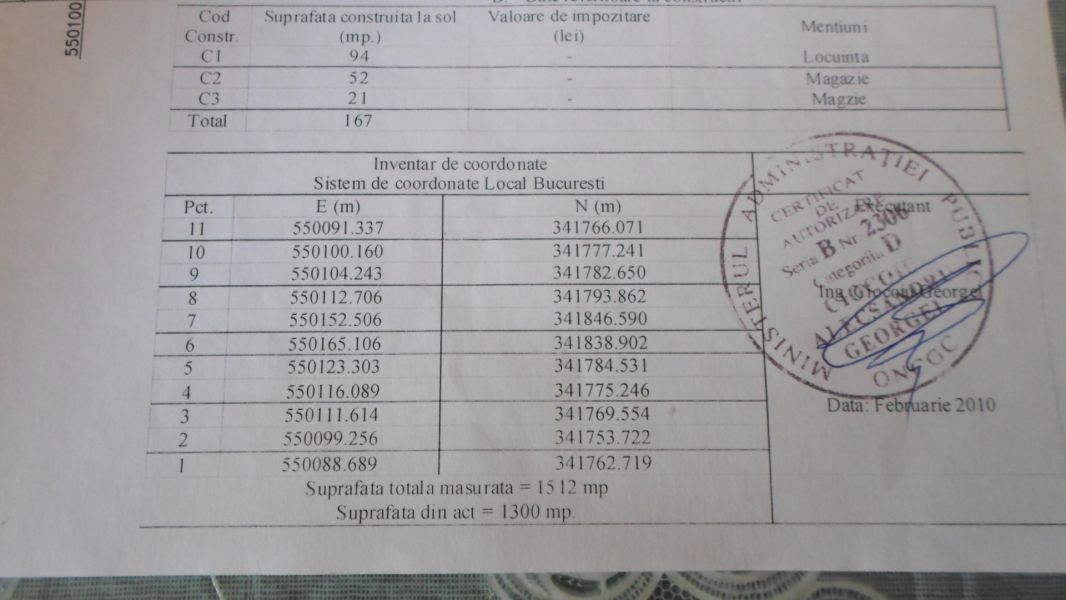 550100
Cod Constr. Suprafata construita la sol (mp.) Valoare de impozitare (lei) Mentiuni
C1 94 - Locuinta
C2 52 - Magazie
C3 21 - Magzie
Total 167
Inventar de coordonate
Sistem de coordonate Local Bucuresti
Pct. E (m) N (m)
11 550091.337 341766.071
10 550100.160 341777.241
9 550104.243 341782.650
8 550112.706 341793.862
7 550152.506 341846.590
6 550165.106 341838.902
5 550123.303 341784.531
4 550116.089 341775.246
3 550111.614 341769.554
2 550099.256 341753.722
1 550088.689 341762.719
Suprafata totala masurata = 1512 mp
Suprafata din act = 1300 mp.
Executant
Ing. Georgel
Data: Februarie 2010
MINISTERUL ADMINISTRAŢIEI PUBLICE
CERTIFICAT
DE
AUTORIZARE
Seria B Nr. 2306
Categoriia D
GEORGEL
ONCGC